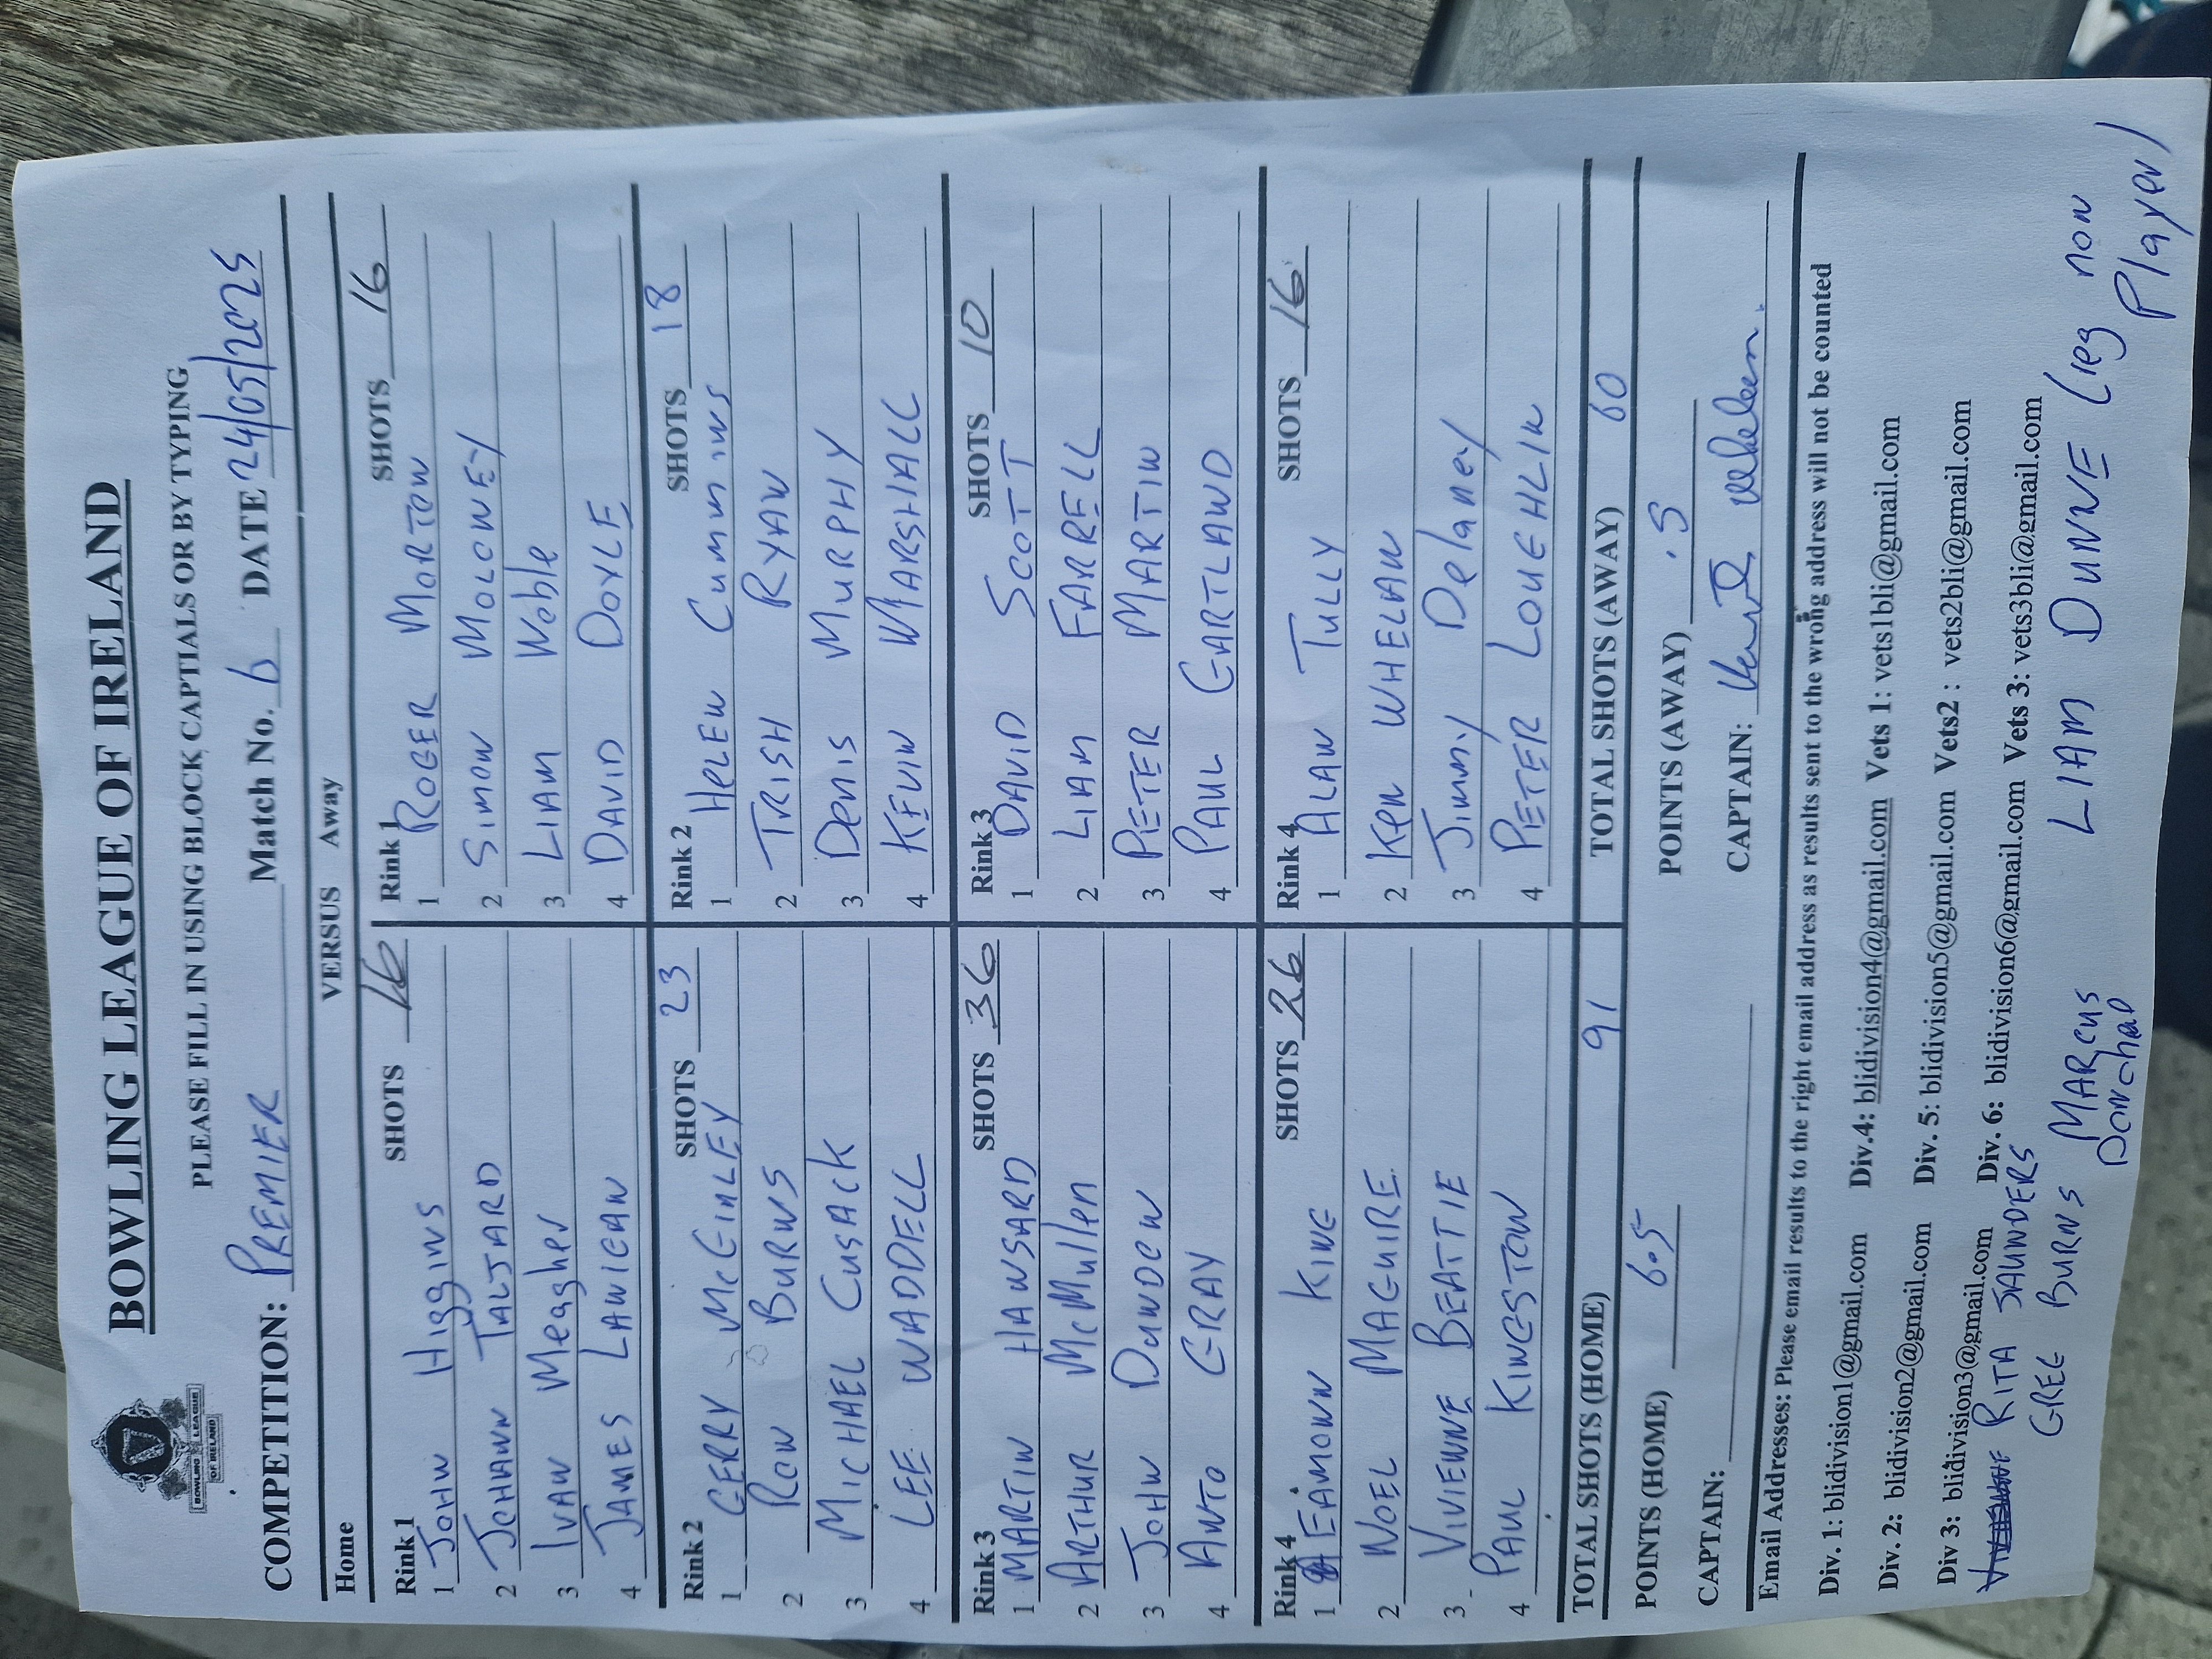 BOWLING LEAGUE OF IRELAND
BOWLING LEAGUE
OF IRELAND
PLEASE FILL IN USING BLOCK CAPTIALS OR BY TYPING
COMPETITION: PREMIER Match No. 6 DATE 24/05/2025
Home VERSUS Away
Rink 1 SHOTS 16
1 JOHN Higgins
2 JOHANN TALJARD
3 IVAN Meagher
4 JAMES LANIGAN
Rink 1 SHOTS 16
1 ROGER MORTON
2 SIMON MOLONEY
3 LIAM Noble
4 DAVID DOYLE
Rink 2 SHOTS 23
1 GERRY McGINLEY
2 RON BURNS
3 MICHAEL CUSACK
4 LEE WADDELL
Rink 2 SHOTS 18
1 HELEN Cummins
2 TRISH RYAN
3 DENIS MURPHY
4 KEVIN MARSHALL
Rink 3 SHOTS 36
1 MARTIN HANSARD
2 ARTHUR McMullen
3 JOHN DUNDON
4 ANTO GRAY
Rink 3 SHOTS 10
1 DAVID SCOTT
2 LIAM FARRELL
3 PETER MARTIN
4 PAUL GARTLAND
Rink 4 SHOTS 26
1 EAMONN KING
2 NOEL MAGUIRE
3 VIVIENNE BEATTIE
4 PAUL KINGSTON
Rink 4 SHOTS 16
1 ALAN TULLY
2 Ken WHELAN
3 Jimmy Delaney
4 PETER LOUGHLIN
TOTAL SHOTS (HOME) 91 TOTAL SHOTS (AWAY) 60
POINTS (HOME) 6.5 POINTS (AWAY) .5
CAPTAIN: CAPTAIN:
Email Addresses: Please email results to the right email address as results sent to the wrong address will not be counted
Div. 1: blidivision1@gmail.com Div.4: blidivision4@gmail.com Vets 1: vets1bli@gmail.com
Div. 2: blidivision2@gmail.com Div. 5: blidivision5@gmail.com Vets2 : vets2bli@gmail.com
Div 3: blidivision3@gmail.com Div. 6: blidivision6@gmail.com Vets 3: vets3bli@gmail.com
RITA SAUNDERS
GREG BURNS MARCUS
LIAM DUNNE (reg non
Player)